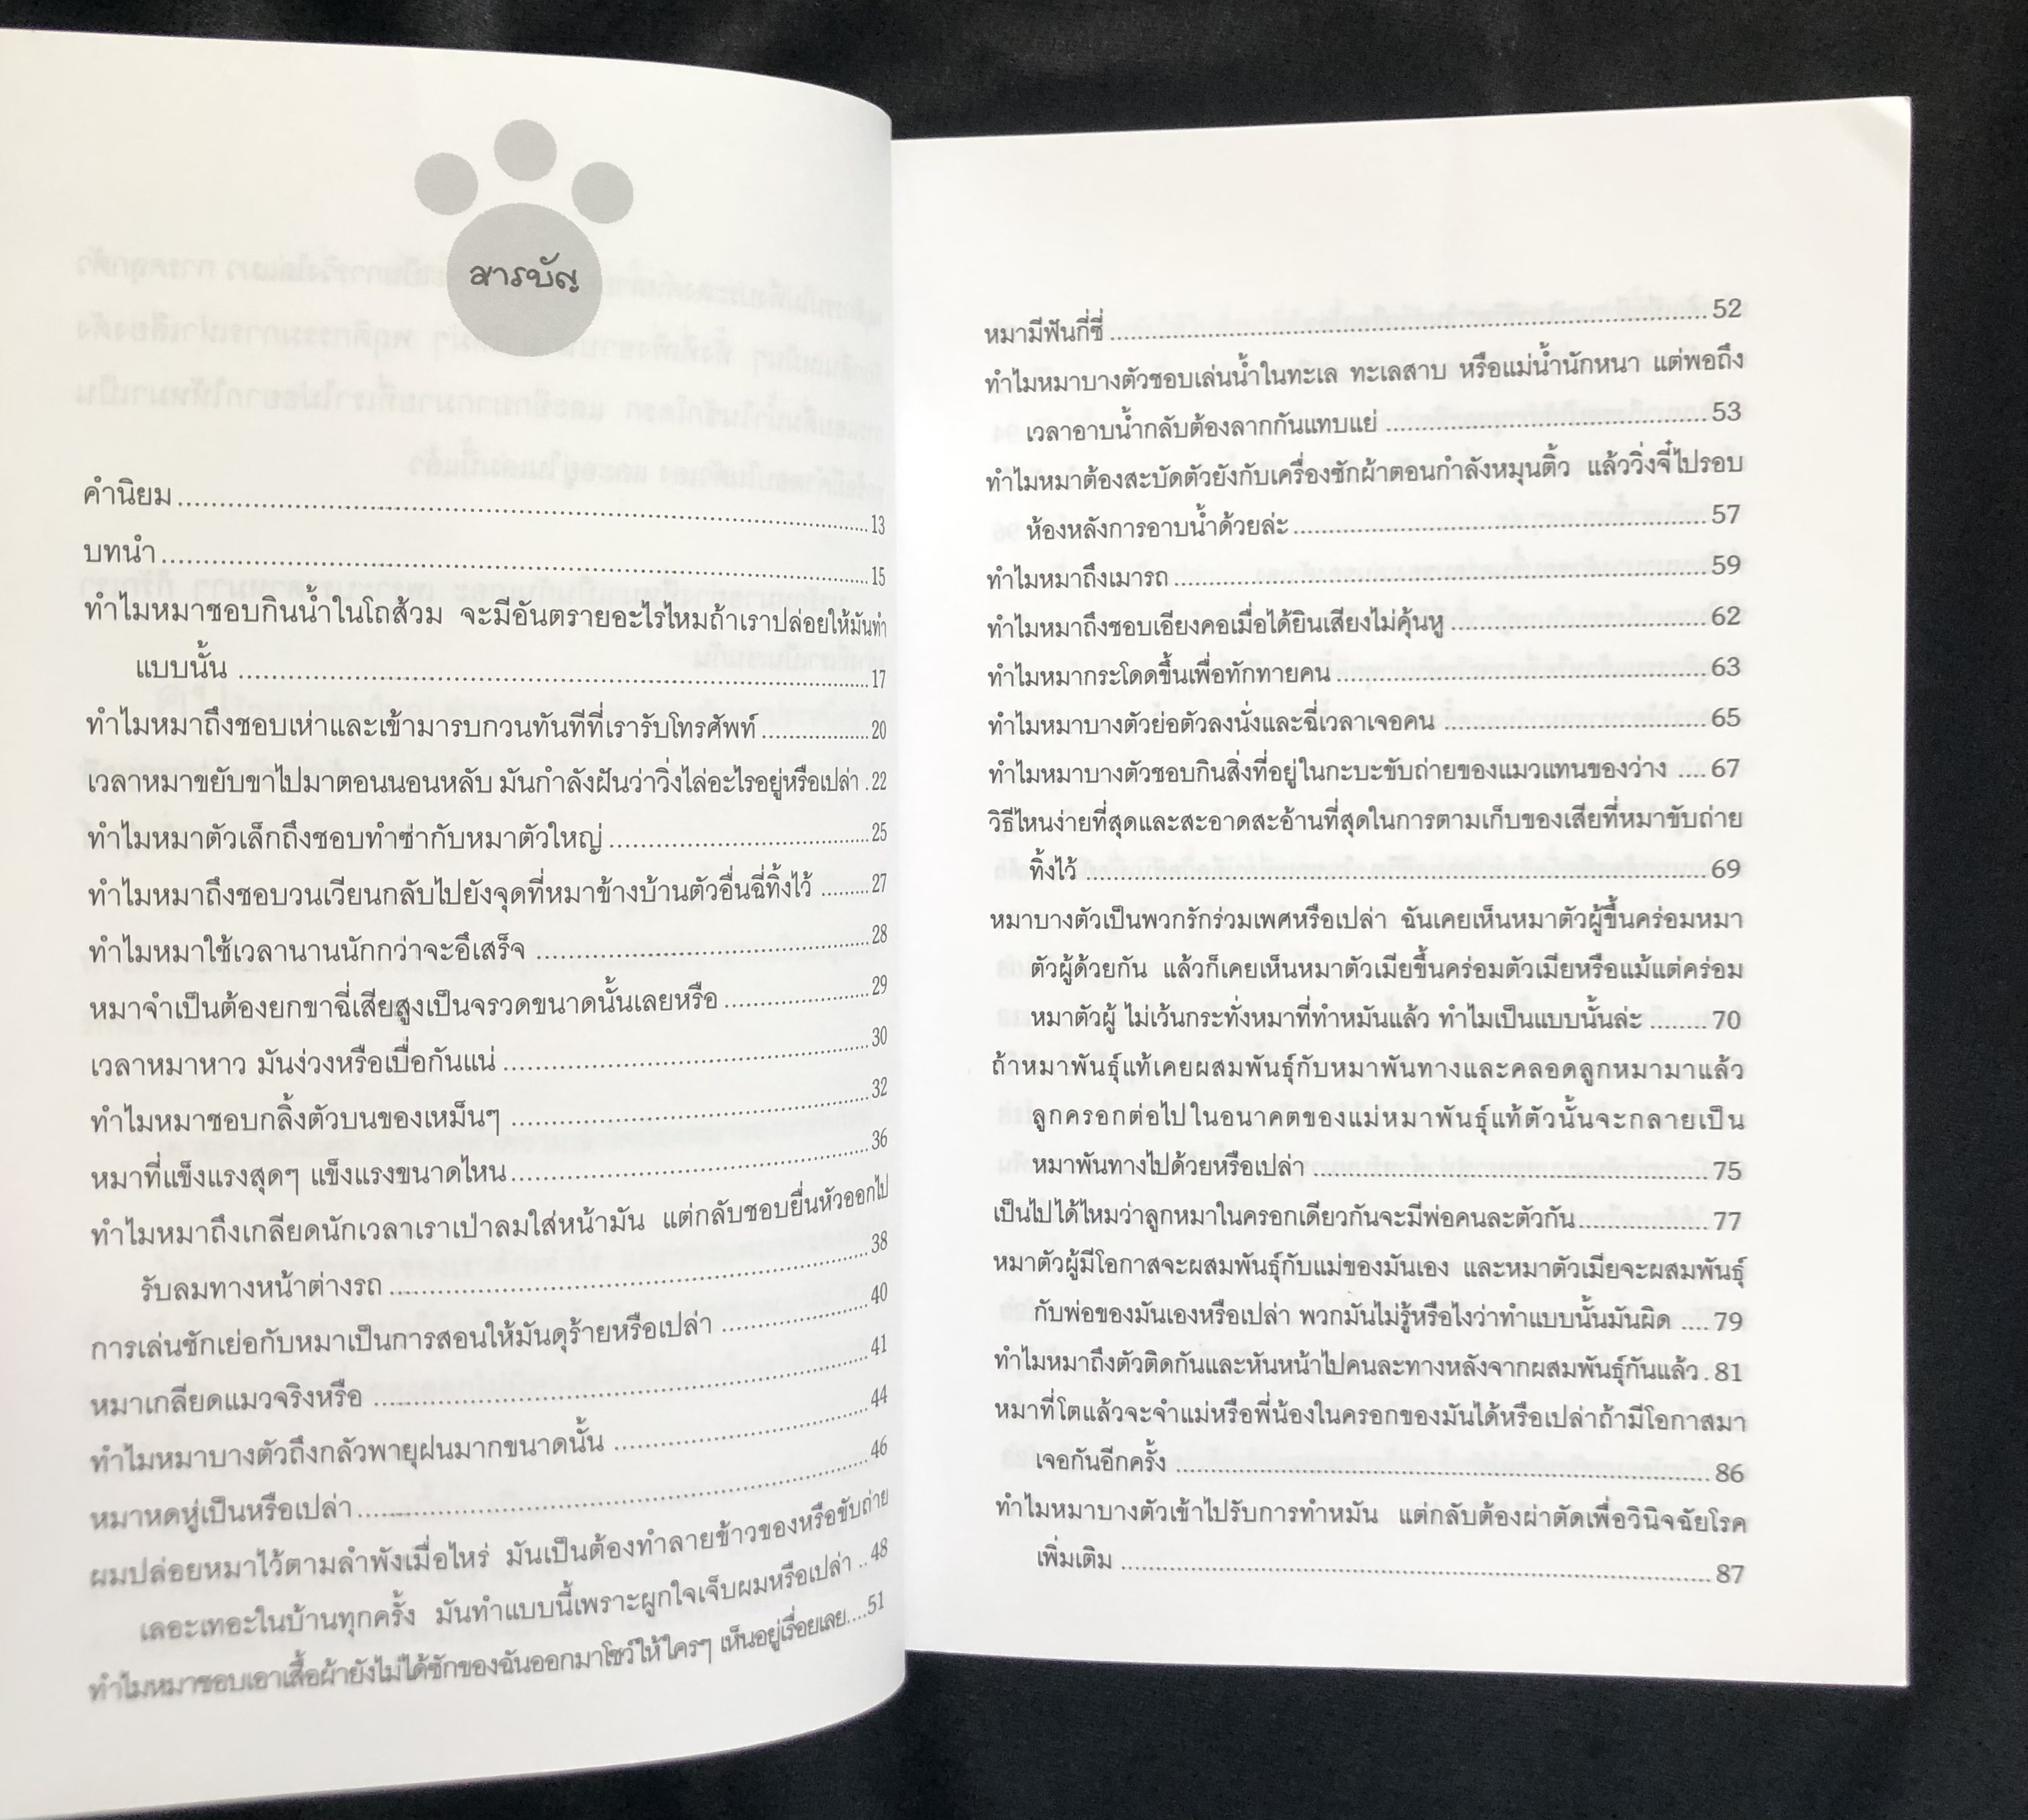 สารบัญ
คำนิยม........................................13
บทนำ........................................15
ทำไมหมาชอบกินน้ำในโถส้วม จะมีอันตรายอะไรไหมถ้าเราปล่อยให้มันทำ
แบบนั้น ........................................17
ทำไมหมาถึงชอบเห่าและเข้ามารบกวนทันทีที่เรารับโทรศัพท์..................20
เวลาหมาขยับขาไปมาตอนนอนหลับ มันกำลังฝันว่าวิ่งไล่อะไรอยู่หรือเปล่า .22
ทำไมหมาตัวเล็กถึงชอบทำซ่ากับหมาตัวใหญ่ ........................................25
ทำไมหมาถึงชอบวนเวียนกลับไปยังจุดที่หมาข้างบ้านตัวอื่นฉี่ทิ้งไว้ .........27
ทำไมหมาใช้เวลานานนักกว่าจะอึเสร็จ ........................................28
หมาจำเป็นต้องยกขาฉี่เสียสูงเป็นจรวดขนาดนั้นเลยหรือ ........................29
เวลาหมาหาว มันง่วงหรือเบื่อกันแน่ ........................................30
ทำไมหมาชอบกลิ้งตัวบนของเหม็นๆ ........................................32
หมาที่แข็งแรงสุดๆ แข็งแรงขนาดไหน........................................36
ทำไมหมาถึงเกลียดนักเวลาเราเป่าลมใส่หน้ามัน แต่กลับชอบยื่นหัวออกไป
รับลมทางหน้าต่างรถ ........................................38
การเล่นชักเย่อกับหมาเป็นการสอนให้มันดุร้ายหรือเปล่า ........................40
หมาเกลียดแมวจริงหรือ ........................................41
ทำไมหมาบางตัวถึงกลัวพายุฝนมากขนาดนั้น ........................................44
หมาหดหู่เป็นหรือเปล่า........................................46
ผมปล่อยหมาไว้ตามลำพังเมื่อไหร่ มันเป็นต้องทำลายข้าวของหรือขับถ่าย
เลอะเทอะในบ้านทุกครั้ง มันทำแบบนี้เพราะผูกใจเจ็บผมหรือเปล่า ..48
ทำไมหมาชอบเอาเสื้อผ้ายังไม่ได้ซักของฉันออกมาโชว์ให้ใครๆ เห็นอยู่เรื่อยเลย....51
หมามีฟันกี่ซี่ ........................................52
ทำไมหมาบางตัวชอบเล่นน้ำในทะเล ทะเลสาบ หรือแม่น้ำนักหนา แต่พอถึง
เวลาอาบน้ำกลับต้องลากกันแทบแย่ ........................................53
ทำไมหมาต้องสะบัดตัวยังกับเครื่องซักผ้าตอนกำลังหมุนติ้ว แล้ววิ่งจี๋ไปรอบ
ห้องหลังการอาบน้ำด้วยล่ะ........................................57
ทำไมหมาถึงเมารถ ........................................59
ทำไมหมาถึงชอบเอียงคอเมื่อได้ยินเสียงไม่คุ้นหู ........................................62
ทำไมหมากระโดดขึ้นเพื่อทักทายคน ........................................63
ทำไมหมาบางตัวย่อตัวลงนั่งและฉี่เวลาเจอคน ........................................65
ทำไมหมาบางตัวชอบกินสิ่งที่อยู่ในกะบะขับถ่ายของแมวแทนของว่าง ....67
วิธีไหนง่ายที่สุดและสะอาดสะอ้านที่สุดในการตามเก็บของเสียที่หมาขับถ่าย
ทิ้งไว้ ........................................69
หมาบางตัวเป็นพวกรักร่วมเพศหรือเปล่า ฉันเคยเห็นหมาตัวผู้ขึ้นคร่อมหมา
ตัวผู้ด้วยกัน แล้วก็เคยเห็นหมาตัวเมียขึ้นคร่อมตัวเมียหรือแม้แต่คร่อม
หมาตัวผู้ ไม่เว้นกระทั่งหมาที่ทำหมันแล้ว ทำไมเป็นแบบนั้นล่ะ ........70
ถ้าหมาพันธุ์แท้เคยผสมพันธุ์กับหมาพันทางและคลอดลูกหมามาแล้ว
ลูกครอกต่อไปในอนาคตของแม่หมาพันธุ์แท้ตัวนั้นจะกลายเป็น
หมาพันทางไปด้วยหรือเปล่า ........................................75
เป็นไปได้ไหมว่าลูกหมาในครอกเดียวกันจะมีพ่อคนละตัวกัน..................77
หมาตัวผู้มีโอกาสจะผสมพันธุ์กับแม่ของมันเอง และหมาตัวเมียจะผสมพันธุ์
กับพ่อของมันเองหรือเปล่า พวกมันไม่รู้หรือไงว่าทำแบบนั้นมันผิด ....79
ทำไมหมาถึงตัวติดกันและหันหน้าไปคนละทางหลังจากผสมพันธุ์กันแล้ว.81
หมาที่โตแล้วจะจำแม่หรือพี่น้องในครอกของมันได้หรือเปล่าถ้ามีโอกาสมา
เจอกันอีกครั้ง ........................................86
ทำไมหมาบางตัวเข้าไปรับการทำหมัน แต่กลับต้องผ่าตัดเพื่อวินิจฉัยโรค
เพิ่มเติม ........................................87